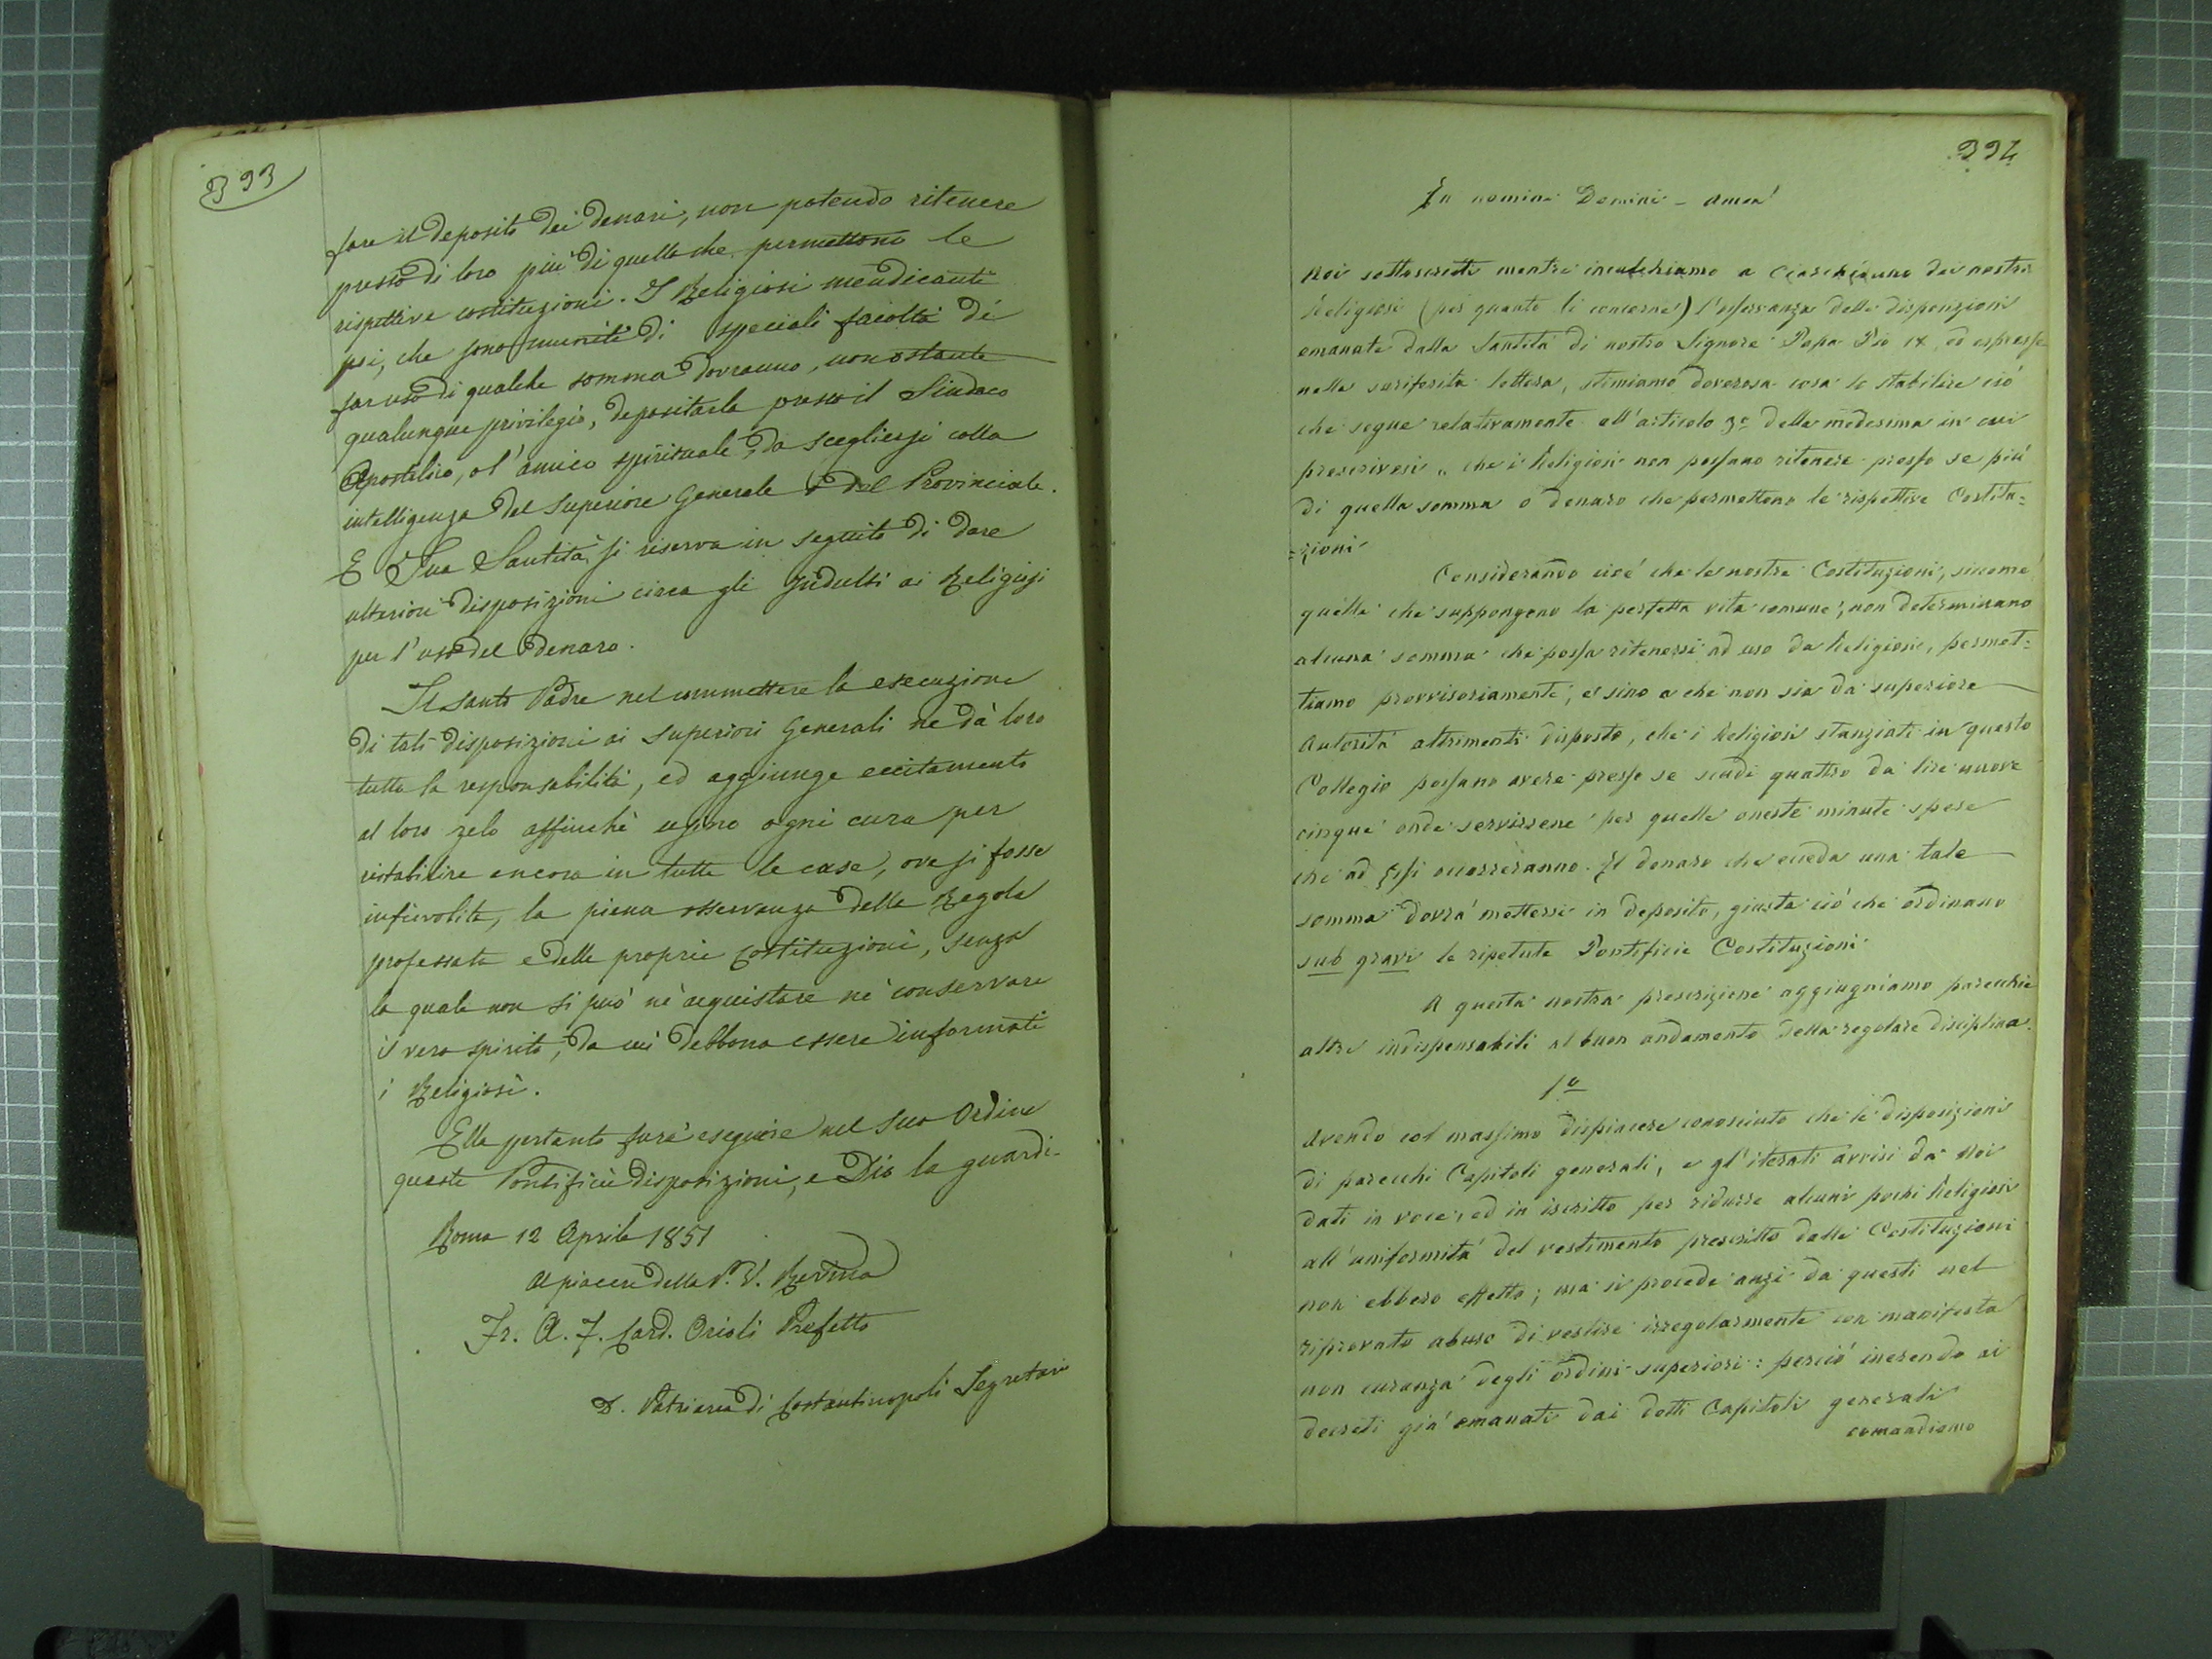 393
fare il deposito dei denari, non potendo ritenere
presso di loro piu' di quello che permettono le
rispettive costituzioni. I Religiosi mendicanti
poi, che sono muniti di speciali facoltà di
far uso di qualche somma dovranno, nonostante
qualunque privilegio, depositarla presso il Sindaco
Apostolico, o l'amico spirituale, da scegliersi colla
intelligenza del Superiore Generale o del Provinciale.
E Sua Santità si riserva in seguito di dare
ulteriori disposizioni circa gli indulti ai Religiosi
per l'uso del denaro.
Il Santo Padre nel commettere la esecuzione
di tali disposizioni ai Superiori Generali ne dà loro
tutta la responsabilità, ed aggiunge eccitamento
al loro zelo affinchè usino ogni cura per
ristabilire ancora in tutte le case, ove si fosse
infievolita, la piena osservanza della Regola
professata e delle proprie Costituzioni, senza
la quale non si può nè acquistare nè conservare
il vero spirito, da cui debbono essere informati
i Religiosi.
Ella pertanto farà eseguire nel suo Ordine
queste Pontificie disposizioni, e Dio la guardi.
Roma 12 Aprile 1851
Al piacere della P. V. Revma
Fr. A. F. Card. Orioli Prefetto
D. Patriarca di Costantinopoli Segretario
394
In nomine Domini - Amen
Noi sottoscritti mentre inculchiamo a ciascheduno dei nostri
Religiosi (per quanto li concerne) l'osservanza delle disposizioni
emanate dalla Santità di nostro Signore Papa Pio IX, ed espresse
nella suriferita lettera, stimiamo doverosa cosa lo stabilire ciò
che segue relativamente all'articolo 3º della medesima in cui
prescrivesi „ che i Religiosi non possano ritenere presso se più
di quella somma o denaro che permettono le rispettive Costitu=
=zioni
Considerando cioè che le nostre Costituzioni, siccome
quelle che suppongono la perfetta vita comune, non determinano
alcuna somma che possa ritenersi ad uso da Religiosi, permet=
tiamo provvisoriamente, e sino a che non sia da superiore
Autorità altrimenti disposto, che i Religiosi stanziati in questo
Collegio possano avere presso se scudi quattro da lire nuove
cinque onde servirsene per quelle oneste minute spese
che ad Essi occorreranno. Il denaro che ecceda una tale
somma dovrà mettersi in deposito, giusta ciò che ordinano
sub gravi le ripetute Pontificie Costituzioni
A questa nostra prescrizione aggiugniamo parecchie
altre indispensabili al buon andamento della regolare disciplina.
1º
Avendo col massimo dispiacere conosciuto che le disposizioni
di parecchi Capitoli generali, e gl'iterati avvisi da Noi
dati in voce, ed in iscritto per ridurre alcuni pochi Religiosi
all'uniformità del vestimento prescritto dalle Costituzioni
non ebbero effetto; ma si procede anzi da questi nel
riprovato abuso di vestire irregolarmente con manifesta
non curanza degli ordini superiori: perciò inerendo ai
decreti già emanati dai detti Capitoli generali
comandiamo